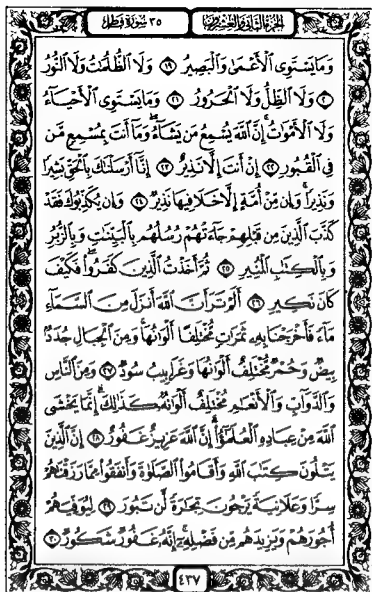 الجزء الثاني والعشرون
٣٥ سورة فاطر
وَمَا يَسْتَوِي الْأَعْمَىٰ وَالْبَصِيرُ ١٩ وَلَا الظُّلُمَاتُ وَلَا النُّورُ
٢٠ وَلَا الظِّلُّ وَلَا الْحَرُورُ ٢١ وَمَا يَسْتَوِي الْأَحْيَاءُ
وَلَا الْأَمْوَاتُ إِنَّ اللَّهَ يُسْمِعُ مَن يَشَاءُ وَمَا أَنتَ بِمُسْمِعٍ مَّن
فِي الْقُبُورِ ٢٢ إِنْ أَنتَ إِلَّا نَذِيرٌ ٢٣ إِنَّا أَرْسَلْنَاكَ بِالْحَقِّ بَشِيرًا
وَنَذِيرًا وَإِن مِّنْ أُمَّةٍ إِلَّا خَلَا فِيهَا نَذِيرٌ ٢٤ وَإِن يُكَذِّبُوكَ فَقَدْ
كَذَّبَ الَّذِينَ مِن قَبْلِهِمْ جَاءَتْهُمْ رُسُلُهُم بِالْبَيِّنَاتِ وَبِالزُّبُرِ
وَبِالْكِتَابِ الْمُنِيرِ ٢٥ ثُمَّ أَخَذْتُ الَّذِينَ كَفَرُوا فَكَيْفَ
كَانَ نَكِيرِ ٢٦ أَلَمْ تَرَ أَنَّ اللَّهَ أَنزَلَ مِنَ السَّمَاءِ
مَاءً فَأَخْرَجْنَا بِهِ ثَمَرَاتٍ مُّخْتَلِفًا أَلْوَانُهَا وَمِنَ الْجِبَالِ جُدَدٌ
بِيضٌ وَحُمْرٌ مُّخْتَلِفٌ أَلْوَانُهَا وَغَرَابِيبُ سُودٌ ٢٧ وَمِنَ النَّاسِ
وَالدَّوَابِّ وَالْأَنْعَامِ مُخْتَلِفٌ أَلْوَانُهُ كَذَٰلِكَ إِنَّمَا يَخْشَى
اللَّهَ مِنْ عِبَادِهِ الْعُلَمَاءُ إِنَّ اللَّهَ عَزِيزٌ غَفُورٌ ٢٨ إِنَّ الَّذِينَ
يَتْلُونَ كِتَابَ اللَّهِ وَأَقَامُوا الصَّلَاةَ وَأَنفَقُوا مِمَّا رَزَقْنَاهُمْ
سِرًّا وَعَلَانِيَةً يَرْجُونَ تِجَارَةً لَّن تَبُورَ ٢٩ لِيُوَفِّيَهُمْ
أُجُورَهُمْ وَيَزِيدَهُم مِّن فَضْلِهِ إِنَّهُ غَفُورٌ شَكُورٌ ٣٠
٤٣٧